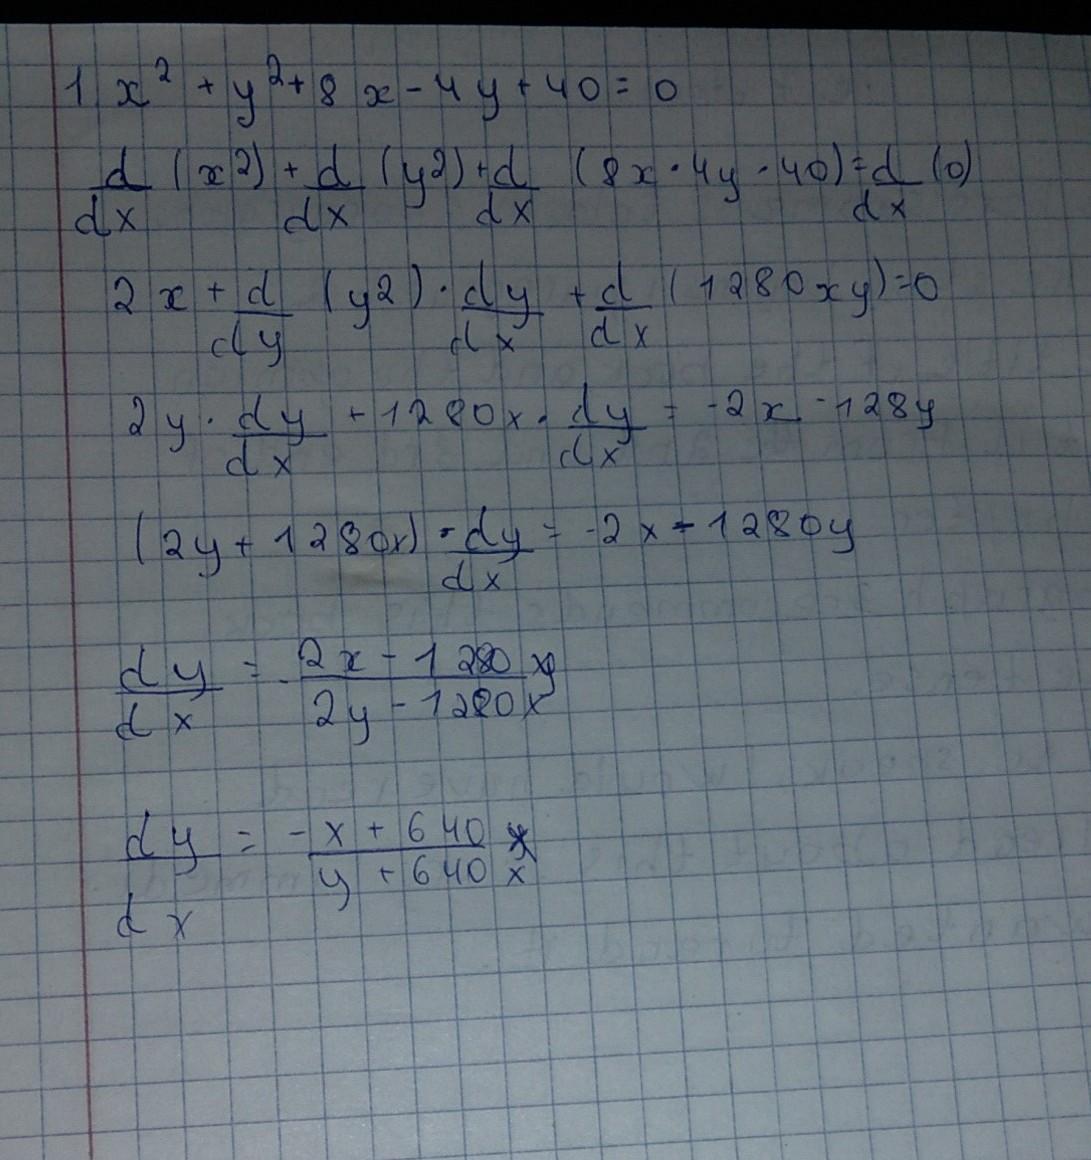 1 x² + y² + 8x - 4y + 40 = 0
d/dx (x2) + d/dx (y2) + d/dx (8x · 4y · 40) = d/dx (0)
2x + d/dy (y2) · dy/dx + d/dx (1280xy) = 0
2y · dy/dx + 1280x · dy/dx = -2x - 128y
(2y + 1280x) · dy/dx = -2x - 1280y
dy/dx = - 2x - 1280y / 2y - 1280x
dy/dx = - x + 640y / y + 640x